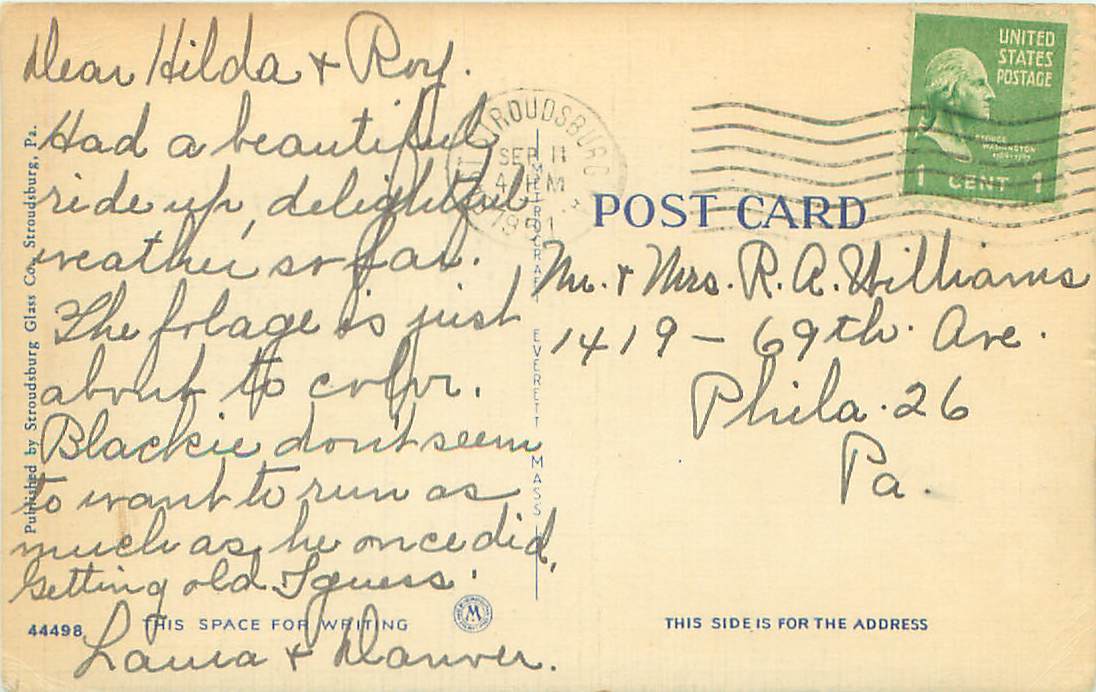 Dear Hilda & Roy.
Had a beautiful
ride up, delightful
weather so far.
The folage is just
about to color.
Blackie don't seem
to want to run as
much as he once did,
Getting old I guess.
Laura & Danver.
Published by Stroudsburg Glass Co., Stroudsburg, Pa.
44498
THIS SPACE FOR WRITING
M
METROCRAFT EVERETT MASS
STROUDSBURG
SEP 11
4 PM
1951
UNITED
STATES
POSTAGE
GEORGE
WASHINGTON
1 CENT 1
POST CARD
Mr. & Mrs. R. A. Williams
1419 - 69th. Ave.
Phila. 26
Pa.
THIS SIDE IS FOR THE ADDRESS